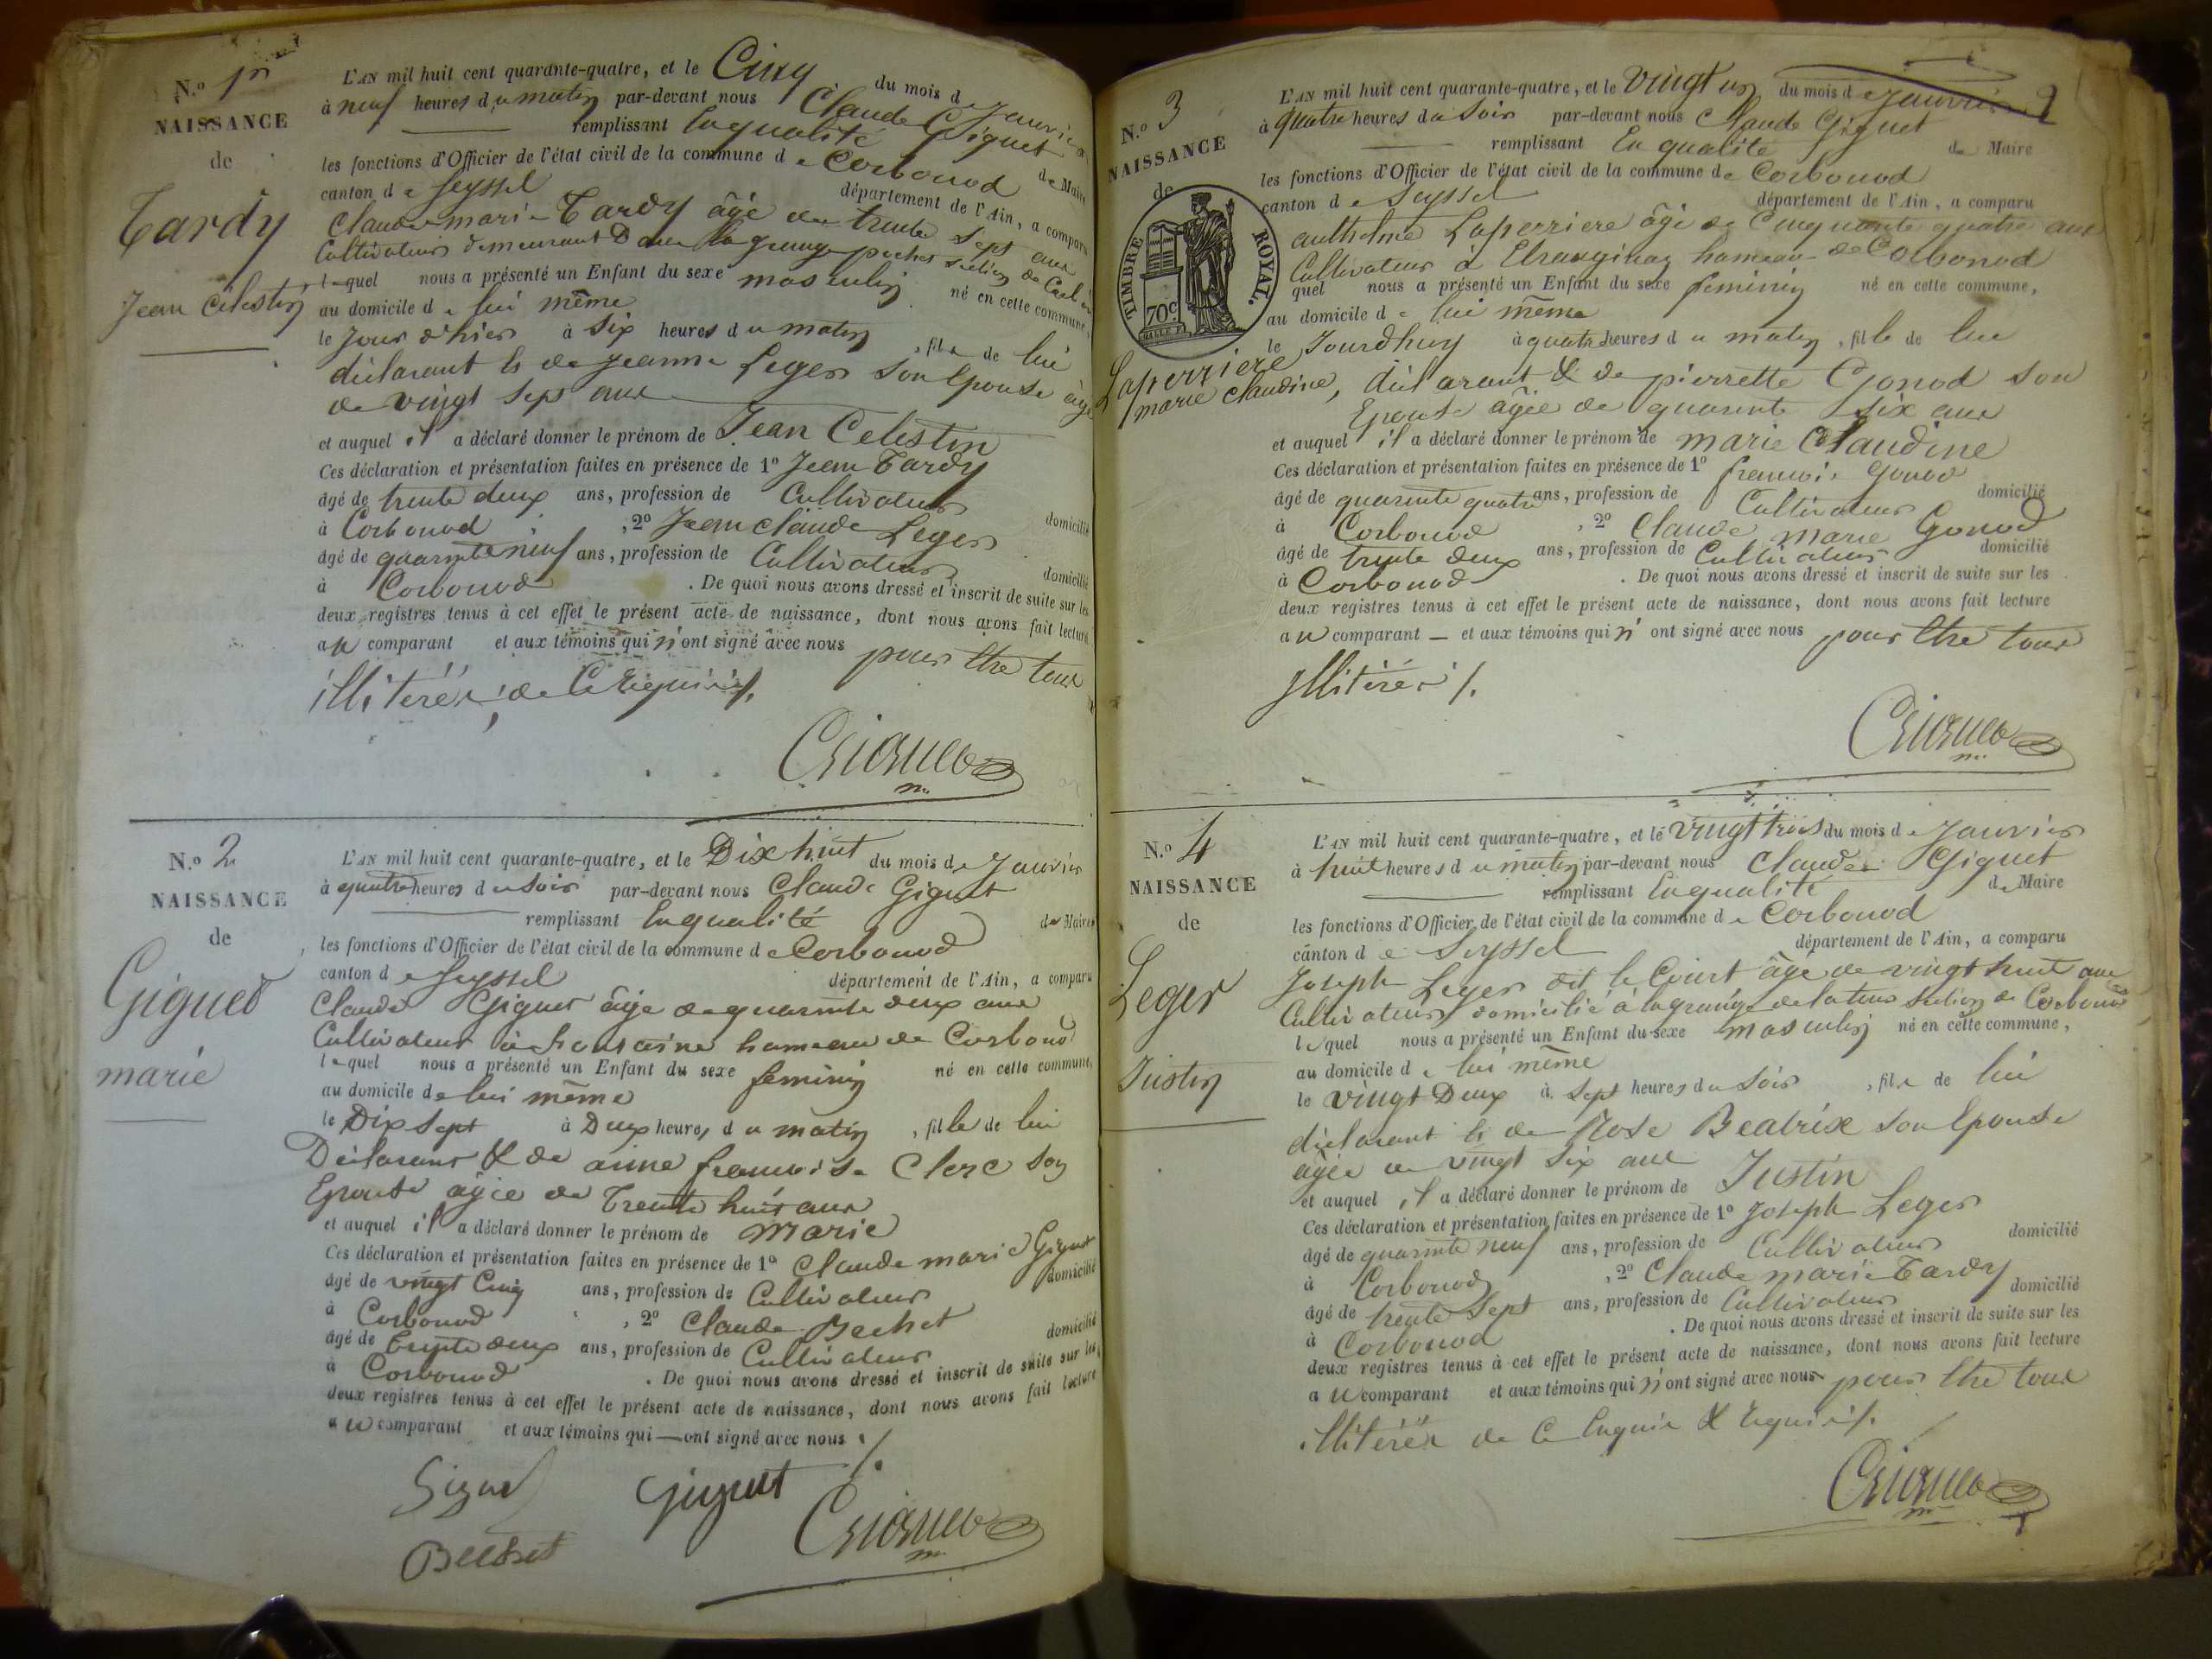 N.o 1er
NAISSANCE
de
Tardy
Jean Célestin
L'AN mil huit cent quarante-quatre, et le Cinq du mois de Janvier
à neuf heures du matin par-devant nous Claude Giguet
remplissant En qualité de Maire
les fonctions d'Officier de l'état civil de la commune de Corbonod
canton de Seyssel département de l'Ain, a comparu
Claude marie Tardy âgé de trente sept ans
Cultivateur demeurant Dans la grange section de
lequel nous a présenté un Enfant du sexe masculin né en cette commune,
au domicile de lui même
le Jour d'hier à Six heures du matin, fils de lui
déclarant & de jeanne Leger Son Epouse âgée
de vingt sept ans
et auquel il a déclaré donner le prénom de Jean Celestin
Ces déclaration et présentation faites en présence de 1o Jean Tardy
âgé de trente deux ans, profession de Cultivateur domicilié
à Corbonod, 2o Jean claude Leger
âgé de quarante neuf ans, profession de Cultivateur domicilié
à Corbonod. De quoi nous avons dressé et inscrit de suite sur les
deux registres tenus à cet effet le présent acte de naissance, dont nous avons fait lecture
au comparant et aux témoins qui n'ont signé avec nous pour être tous
illitérés, de ce Requis ./.
Giguet
N.o 2
NAISSANCE
de
Giguet
marie
L'AN mil huit cent quarante-quatre, et le Dix huit du mois de Janvier
à quatre heures du Soir par-devant nous Claude Giguet
remplissant En qualité de Maire
les fonctions d'Officier de l'état civil de la commune de Corbonod
canton de Seyssel département de l'Ain, a comparu
Claude Giguet âgé de quarante deux ans
Cultivateur à hameau de Corbonod
lequel nous a présenté un Enfant du sexe feminin né en cette commune,
au domicile de lui même
le Dix Sept à Deux heures du matin, fille de lui
Déclarant & de anne francoise Clerc son
Epouse âgée de Trente huit ans
et auquel il a déclaré donner le prénom de Marie
Ces déclaration et présentation faites en présence de 1o Claude marie Giguet
âgé de vingt Cinq ans, profession de Cultivateur domicilié
à Corbonod, 2o Claude Bechet
âgé de Trente deux ans, profession de Cultivateur domicilié
à Corbonod. De quoi nous avons dressé et inscrit de suite sur les
deux registres tenus à cet effet le présent acte de naissance, dont nous avons fait lecture
au comparant et aux témoins qui — ont signé avec nous ./.
Giguet
Giguet
Bechet
N.o 3
NAISSANCE
de
TIMBRE ROYAL.
70c
Laperriere
marie Claudine,
L'AN mil huit cent quarante-quatre, et le vingt un du mois de Janvier 2
à quatre heures du Soir par-devant nous Claude Giguet
remplissant En qualité de Maire
les fonctions d'Officier de l'état civil de la commune de Corbonod
canton de Seyssel département de l'Ain, a comparu
anthelme Laperriere âgé de Cinquante quatre ans
Cultivateur à hameau de Corbonod
quel nous a présenté un Enfant du sexe feminin né en cette commune,
au domicile de lui même
le Jourdhuy à quatre heures du matin, fille de lui
déclarant & de pierrette Gonod son
Epouse âgée de quarante Six ans
et auquel il a déclaré donner le prénom de marie Claudine
Ces déclaration et présentation faites en présence de 1o francois Gonod
âgé de quarante quatre ans, profession de Cultivateur domicilié
à Corbonod, 2o Claude marie Gonod
âgé de trente deux ans, profession de Cultivateur domicilié
à Corbonod. De quoi nous avons dressé et inscrit de suite sur les
deux registres tenus à cet effet le présent acte de naissance, dont nous avons fait lecture
au comparant — et aux témoins qui n'ont signé avec nous pour être tous
jllitérés ./.
Giguet
N.o 4
NAISSANCE
de
Leger
Justin
L'AN mil huit cent quarante-quatre, et le vingt trois du mois de Janvier
à huit heures du matin par-devant nous Claude Giguet
remplissant En qualité de Maire
les fonctions d'Officier de l'état civil de la commune de Corbonod
canton de Seyssel département de l'Ain, a comparu
Joseph Leger dit le Court âgé de vingt huit ans
Cultivateur domicilié à la grange section de Corbonod
lequel nous a présenté un Enfant du sexe masculin né en cette commune,
au domicile de lui même
le vingt Deux à Sept heures du Soir, fils de lui
déclarant & de Rose Beatrix son Epouse
agée de vingt Six ans
et auquel il a déclaré donner le prénom de Justin
Ces déclaration et présentation faites en présence de 1o Joseph Leger
âgé de quarante neuf ans, profession de Cultivateur domicilié
à Corbonod, 2o Claude marie Tardy
âgé de trente Sept ans, profession de Cultivateur domicilié
à Corbonod. De quoi nous avons dressé et inscrit de suite sur les
deux registres tenus à cet effet le présent acte de naissance, dont nous avons fait lecture
au comparant et aux témoins qui n'ont signé avec nous pour être tous
illitérés de ce Enquis & Requis ./.
Giguet